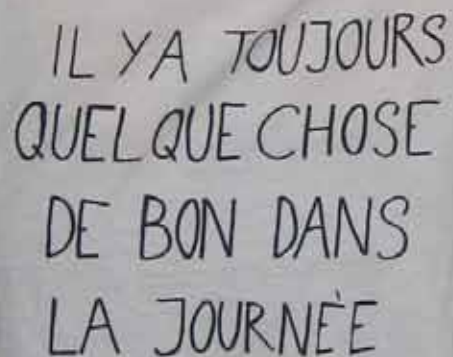 IL Y A TOUJOURS
QUELQUE CHOSE
DE BON DANS
LA JOURNÉE